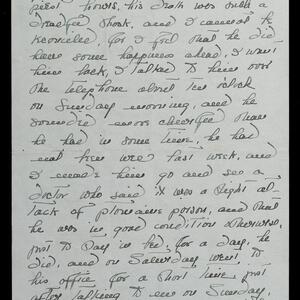 past hours, his death was such a
dreadful shock, and I cannot be
reconciled, for I feel that he did
have some happiness ahead, I want
him back, I talked to him over
the telephone about ten o'clock
on Sunday morning, and he
sounded more cheerful than
he had in some time, he had
not been well last week, and
I made him go and see a
doctor who said it was a slight at-
tack of ptomaine poison, and that
he was in good condition otherwise,
just to stay in bed, for a day, he
did, and on Saturday went to
his office for a short time, just
after talking to me on Sunday,